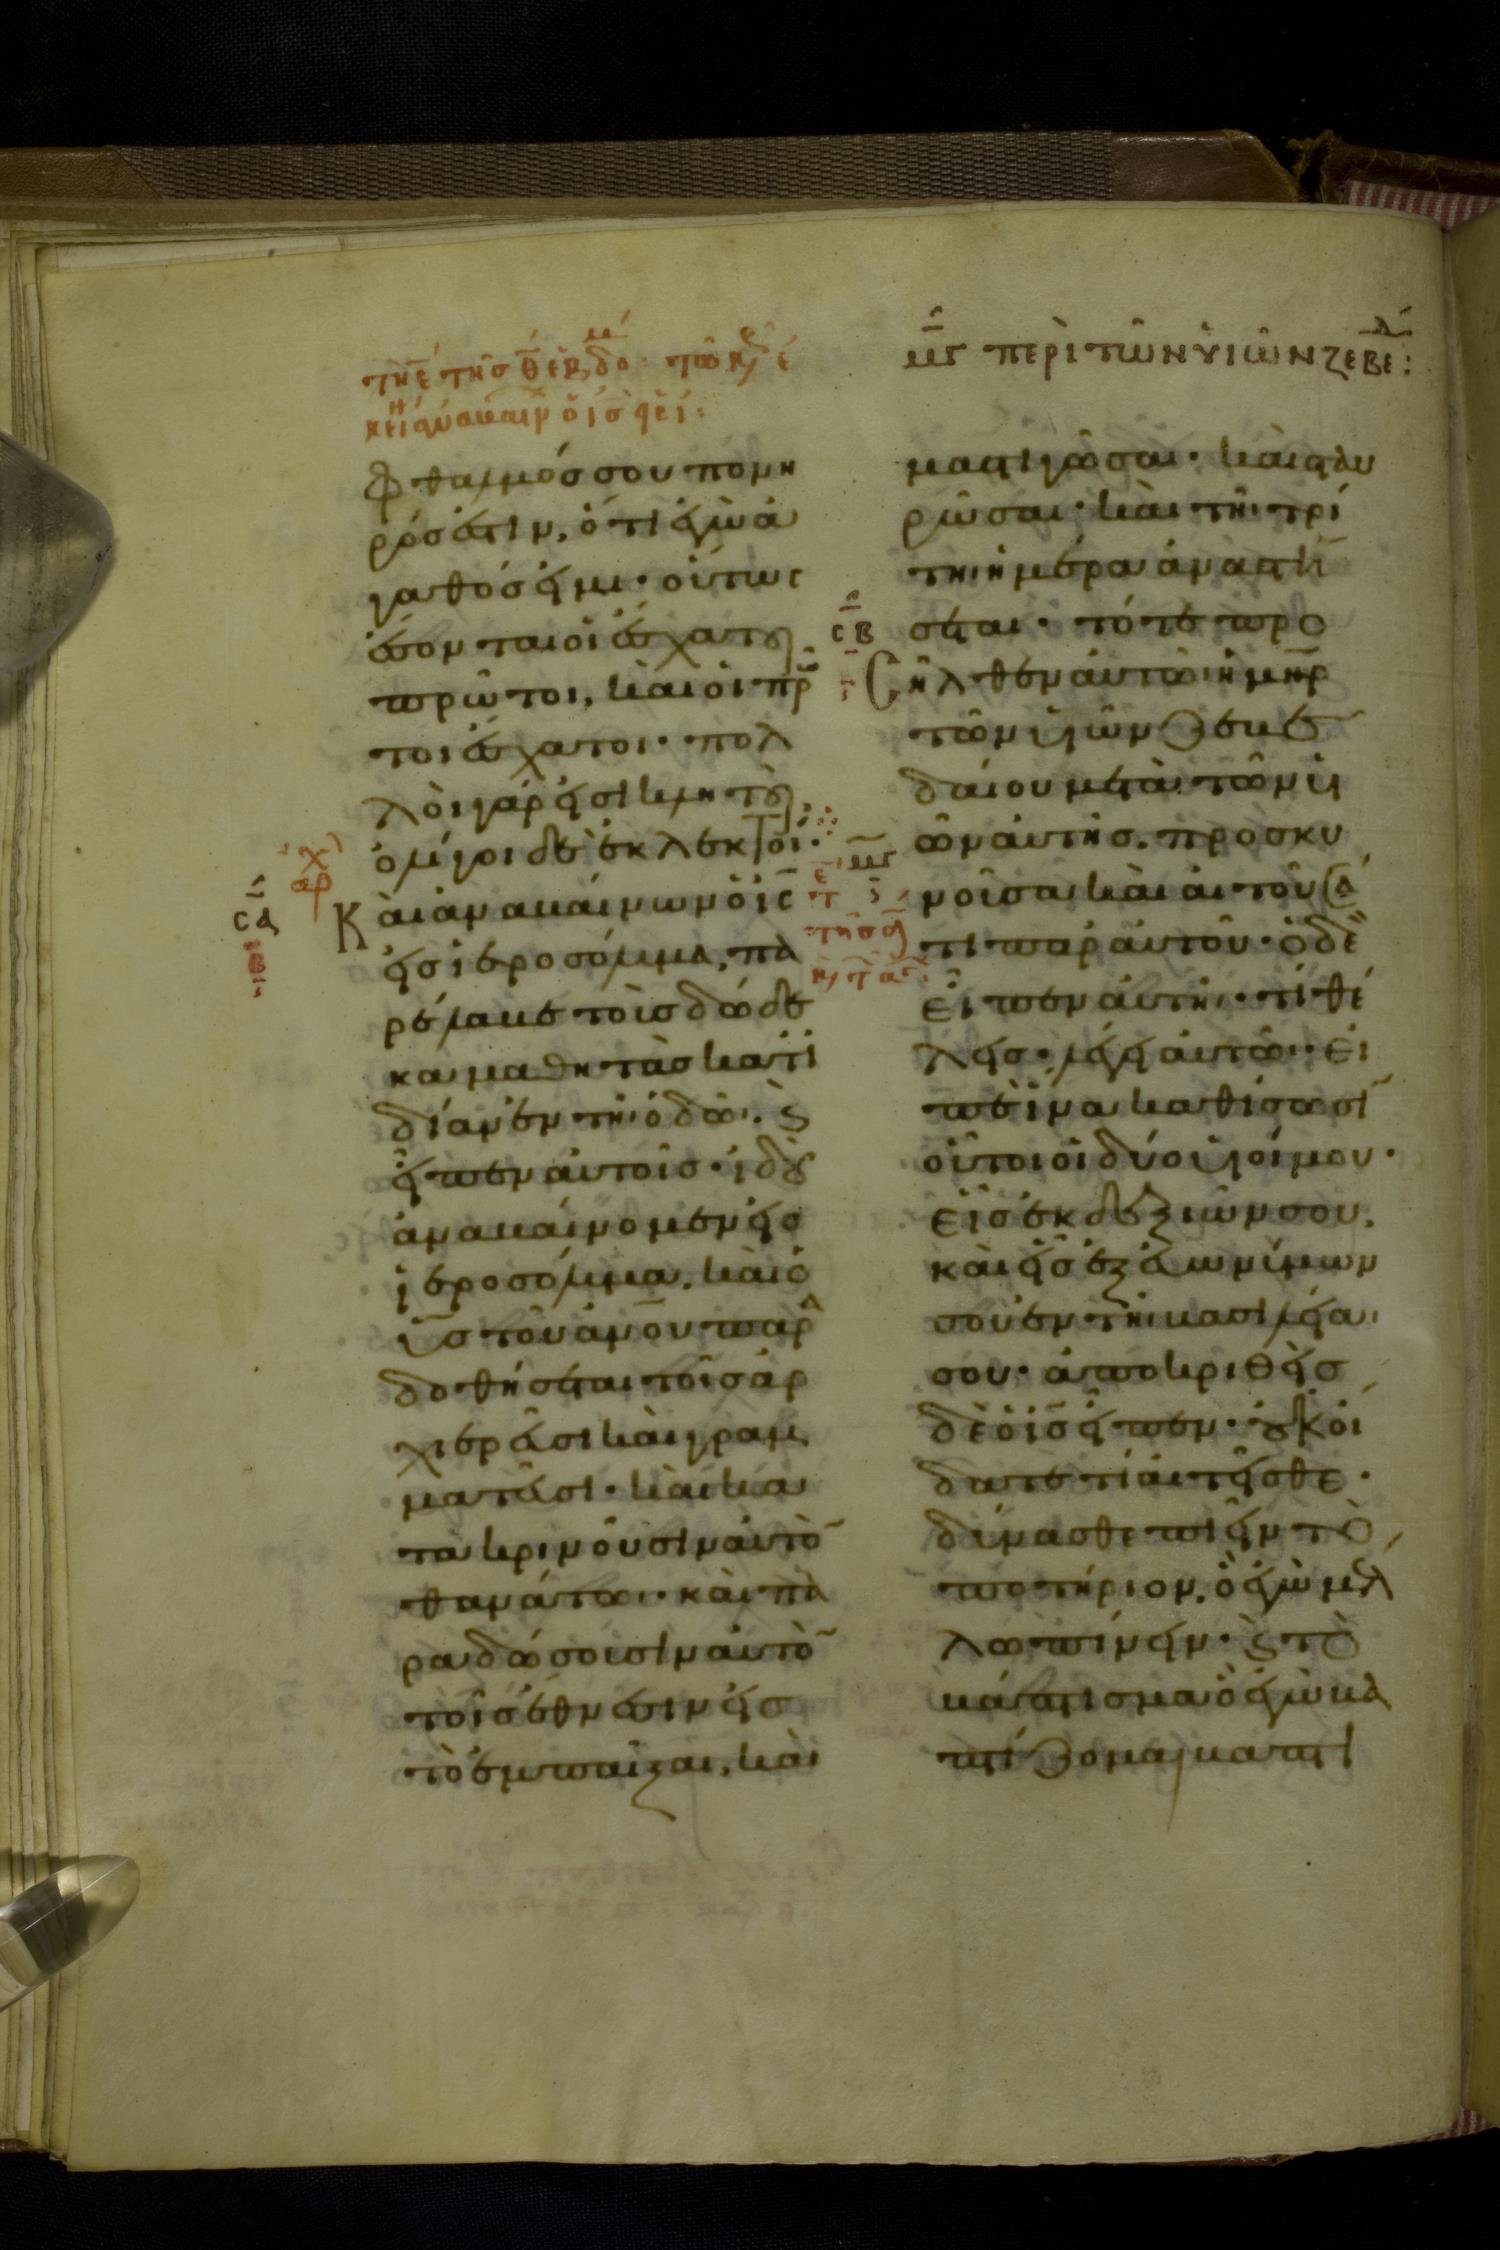 μ̅ς̅ περὶ τῶν υἱῶν ζεβε:
φθαλμός σου πονη
ρός ἐστιν, ὅτι ἐγὼ ἀ
γαθός εἰμι· οὕτως
ἔσονται οἱ ἔσχατοι
πρῶτοι, καὶ οἱ πρῶ
τοι ἔσχατοι· πολ
λοὶ γάρ εἰσι κλητοὶ,
ὀλίγοι δὲ ἐκλεκτοί·
Καὶ ἀναβαίνων ὁ ι̅ς̅
εἰς ἱεροσόλυμα, πα
ρέλαβε τοὺς δώδε
κα μαθητὰς κατ ἰ
δίαν ἐν τῆ ὁδῶ. ϗ
εἶπεν αὐτοῖς· ἰδοὺ
ἀναβαίνομεν εἰς
ἱεροσόλυμα, καὶ ὁ
υ̅ς̅ τοῦ α̅ν̅ο̅υ̅ παρα
δοθήσεται τοῖς ἀρ
χιερεῦσι καὶ γραμ
ματεῦσι· καὶ κα
τακρινοῦσιν αὐτὸ̅
θανάτω· καὶ πα
ραδώσουσιν αὐτὸ̅
τοῖς ἔθνεσιν εἰς
τὸ ἐμπαῖξαι, καὶ
μαστιγῶσαι· καὶ σταυ
ρῶσαι· καὶ τῆ τρί
τη ἡμέρα ἀναστή
σεται· τότε προ
σῆλθεν αὐτῶ ἡ μ̅η̅ρ̅
τῶν υἱῶν ζεβε
δαίου μετὰ τῶν υἱ
ῶν αὐτῆς. προσκυ
νοῦσα καὶ αἰτοῦσά
τι παρ αὐτοῦ· ὁ δὲ
εἶπεν αὐτῆ· τί θέ
λεις· λέγει αὐτῶ· εἰ
πὲ ἵνα καθίσωσι̅
οὗτοι οἱ δύο υἱοί μου·
εἷς ἐκ δεξιῶν σου,
καὶ εἷς ἐξ εὐωνύμων
σου ἐν τῆ βασιλεία
σου· ἀποκριθεὶς
δὲ ὁ ι̅ς̅ εἶπεν· οὐκ οἴ
δατε τί αἰτεῖσθε·
δύνασθε πιεῖν τὸ
ποτήριον, ὃ ἐγὼ μέλ
λω πίνειν· ϗ τὸ
βάπτισμα ὃ ἐγὼ βα
πτίζομαι βαπτι